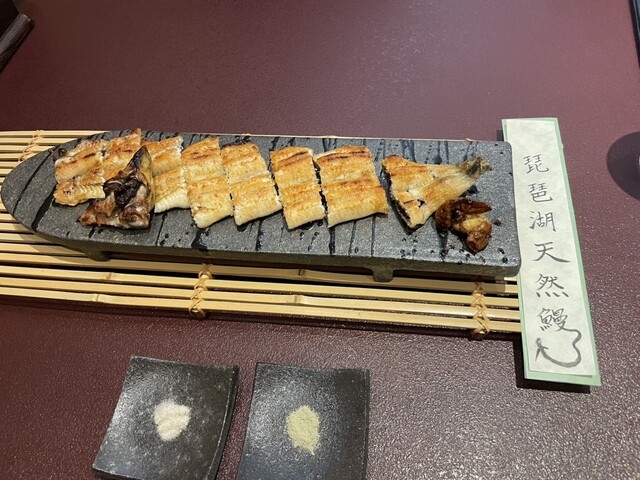 琵琶湖天然鰻